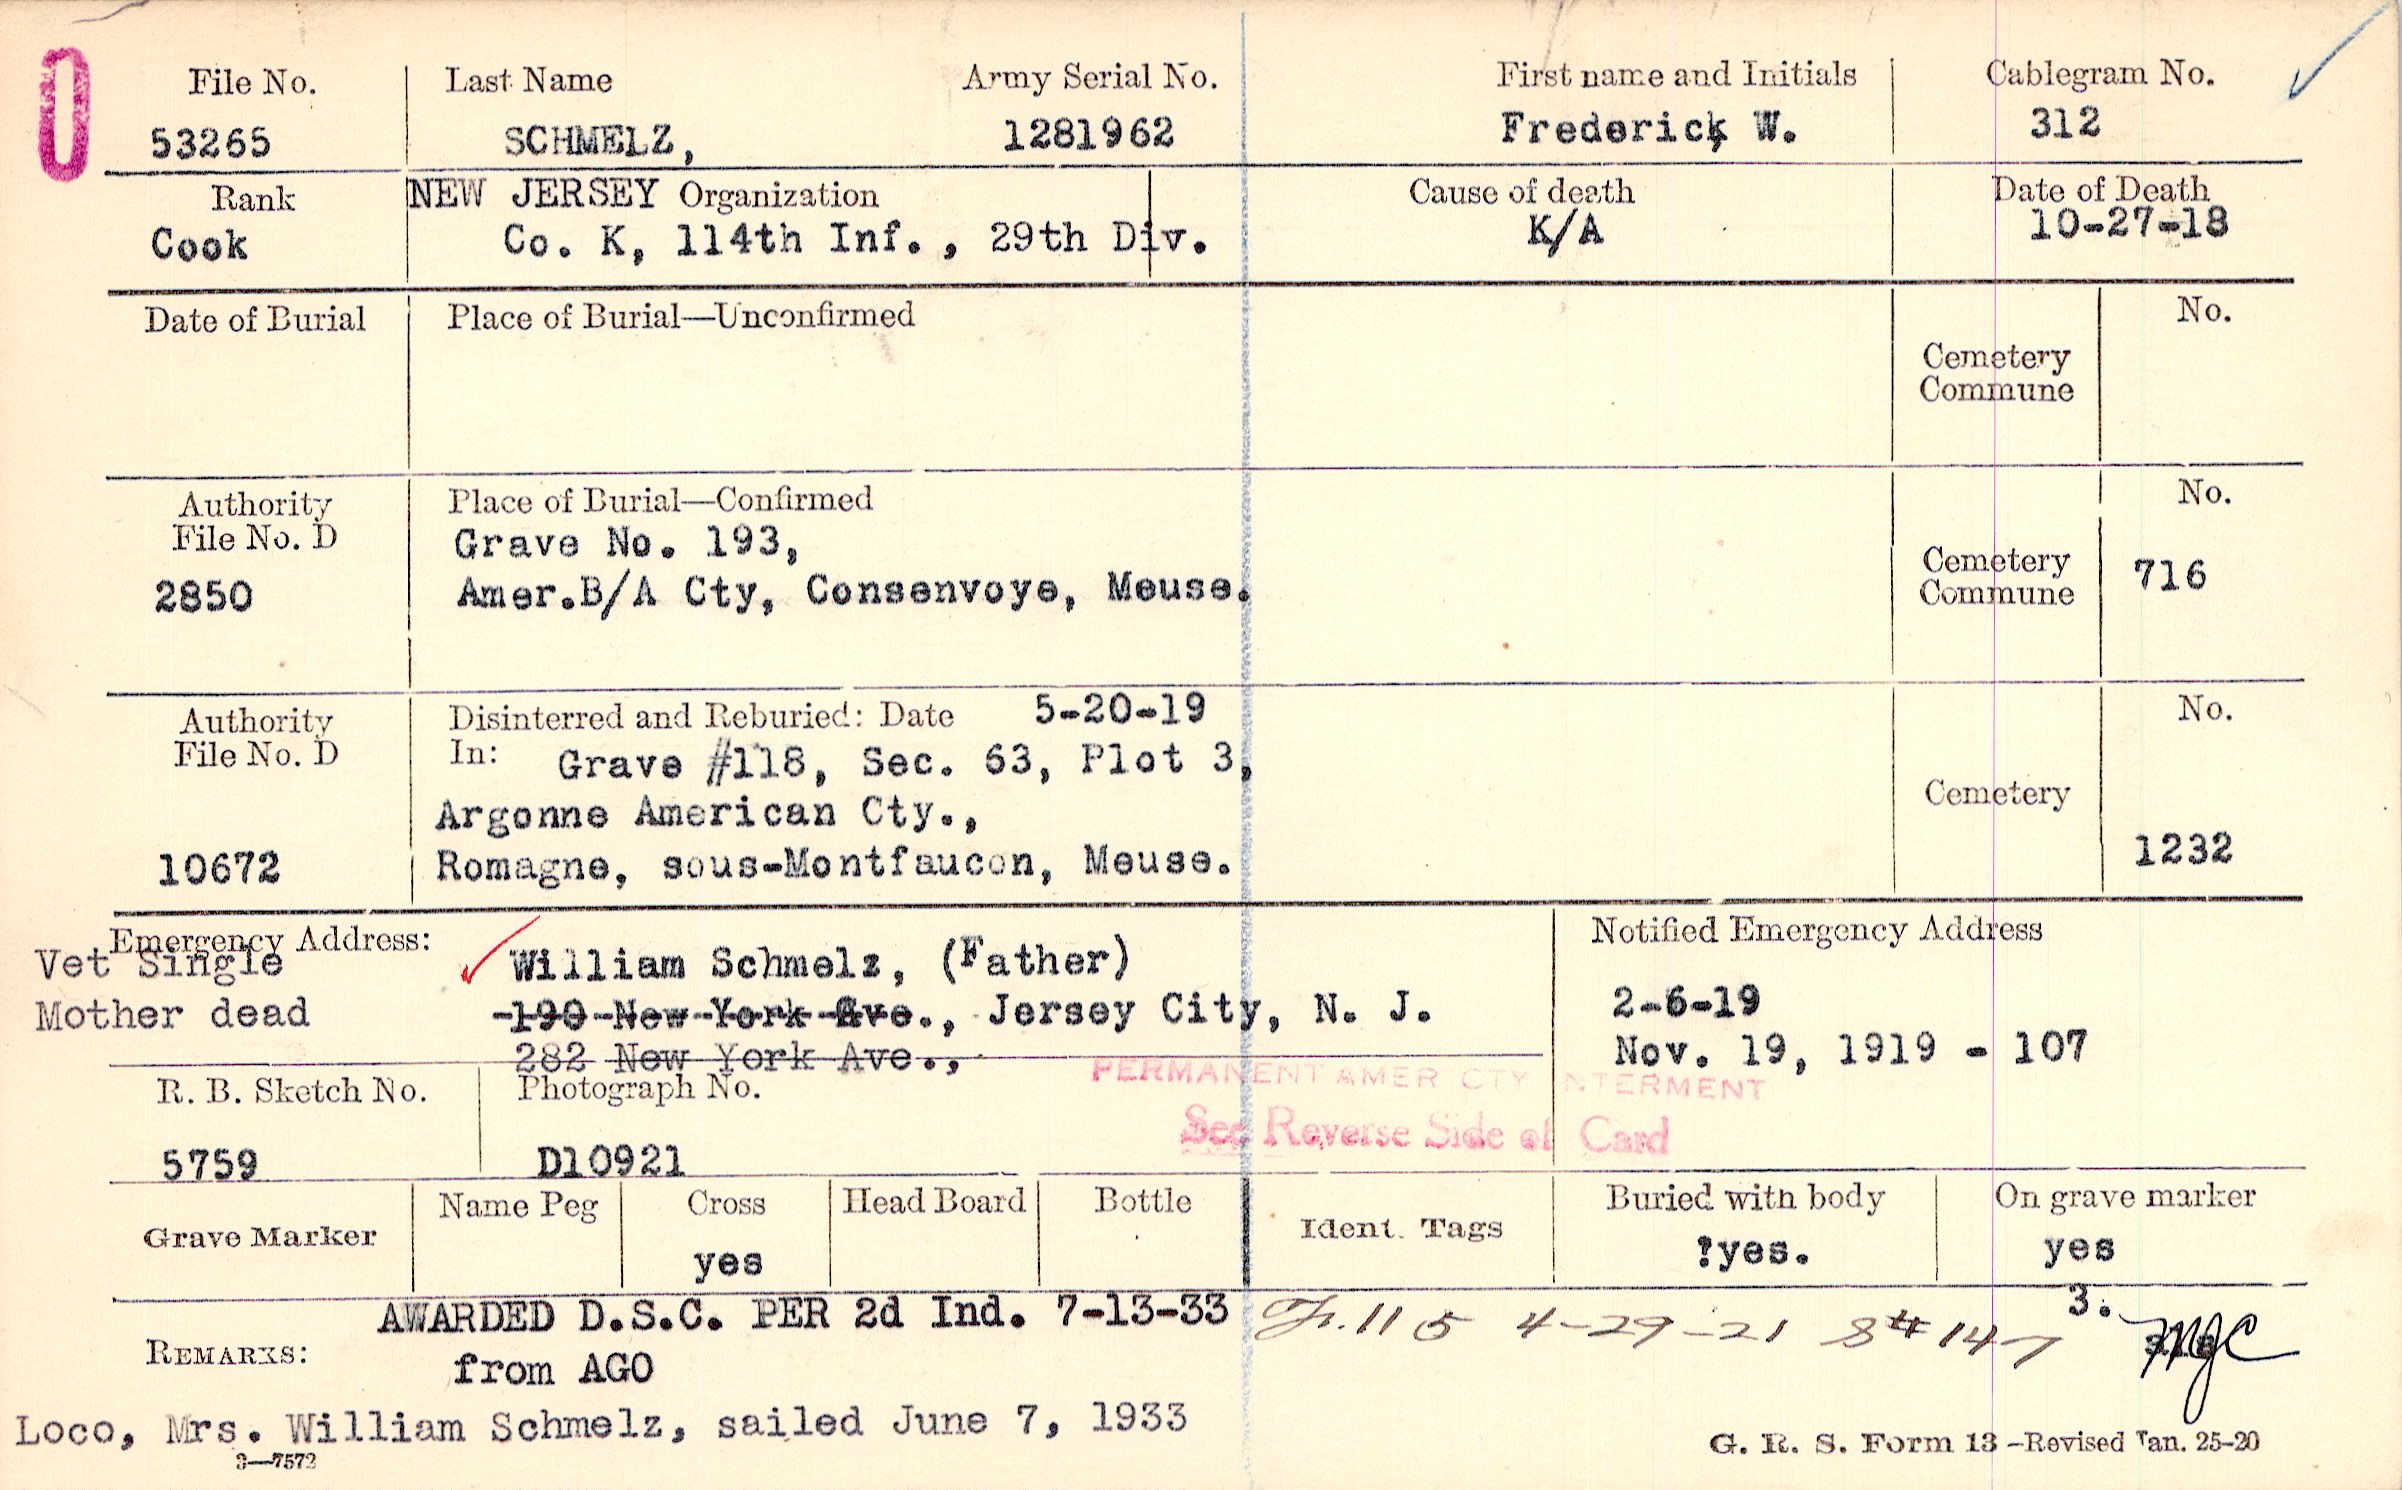 File No. Last Name Army Serial No. First name and Initials Cablegram No.
53265 SCHMELZ, 1281962 Frederick W. 312
Rank NEW JERSEY Organization Cause of death Date of Death
Cook Co. K, 114th Inf., 29th Div. K/A 10-27-18
Date of Burial Place of Burial—Unconfirmed No.
Cemetery
Commune
Authority Place of Burial—Confirmed No.
File No. D Grave No. 193,
2850 Amer.B/A Cty, Consenvoye, Meuse. Cemetery 716
Commune
Authority Disinterred and Reburied: Date 5-20-19 No.
File No. D In: Grave #118, Sec. 63, Plot 3,
Argonne American Cty., Cemetery
10672 Romagne, sous-Montfaucon, Meuse. 1232
Emergency Address: Notified Emergency Address
Vet Single William Schmelz, (Father)
Mother dead 190 New York Ave., Jersey City, N. J. 2-6-19
282 New York Ave., Nov. 19, 1919 - 107
PERMANENT AMER CTY INTERMENT
R. B. Sketch No. Photograph No.
See Reverse Side of Card
5759 D10921
Grave Marker Name Peg Cross Head Board Bottle Ident. Tags Buried with body On grave marker
yes ?yes. yes
AWARDED D.S.C. PER 2d Ind. 7-13-33 5 4-29-21 8# 147 3.
REMARKS: from AGO
Loco, Mrs. William Schmelz, sailed June 7, 1933
3—7572 G. R. S. Form 13—Revised Jan. 25-20